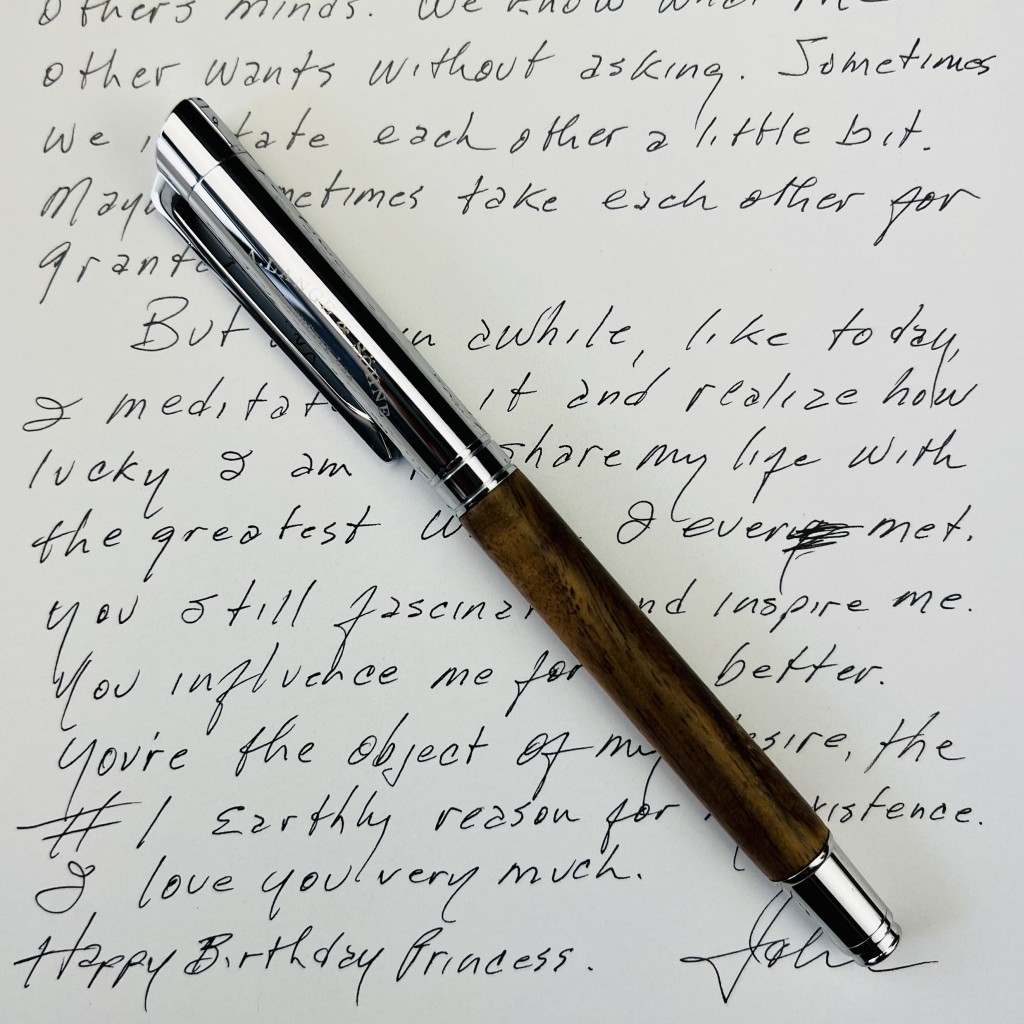 others minds. We know what the
other wants without asking. Sometimes
we each other a little bit.
take each other for
But awhile, like today,
I it and realize how
lucky I am share my life with
the greatest I ever met.
You still inspire me.
You influence me for better.
You're the object of the
#1 Earthly reason for
I love you very much.
Happy Birthday Princess. John
A. LANGE & SÖHNE